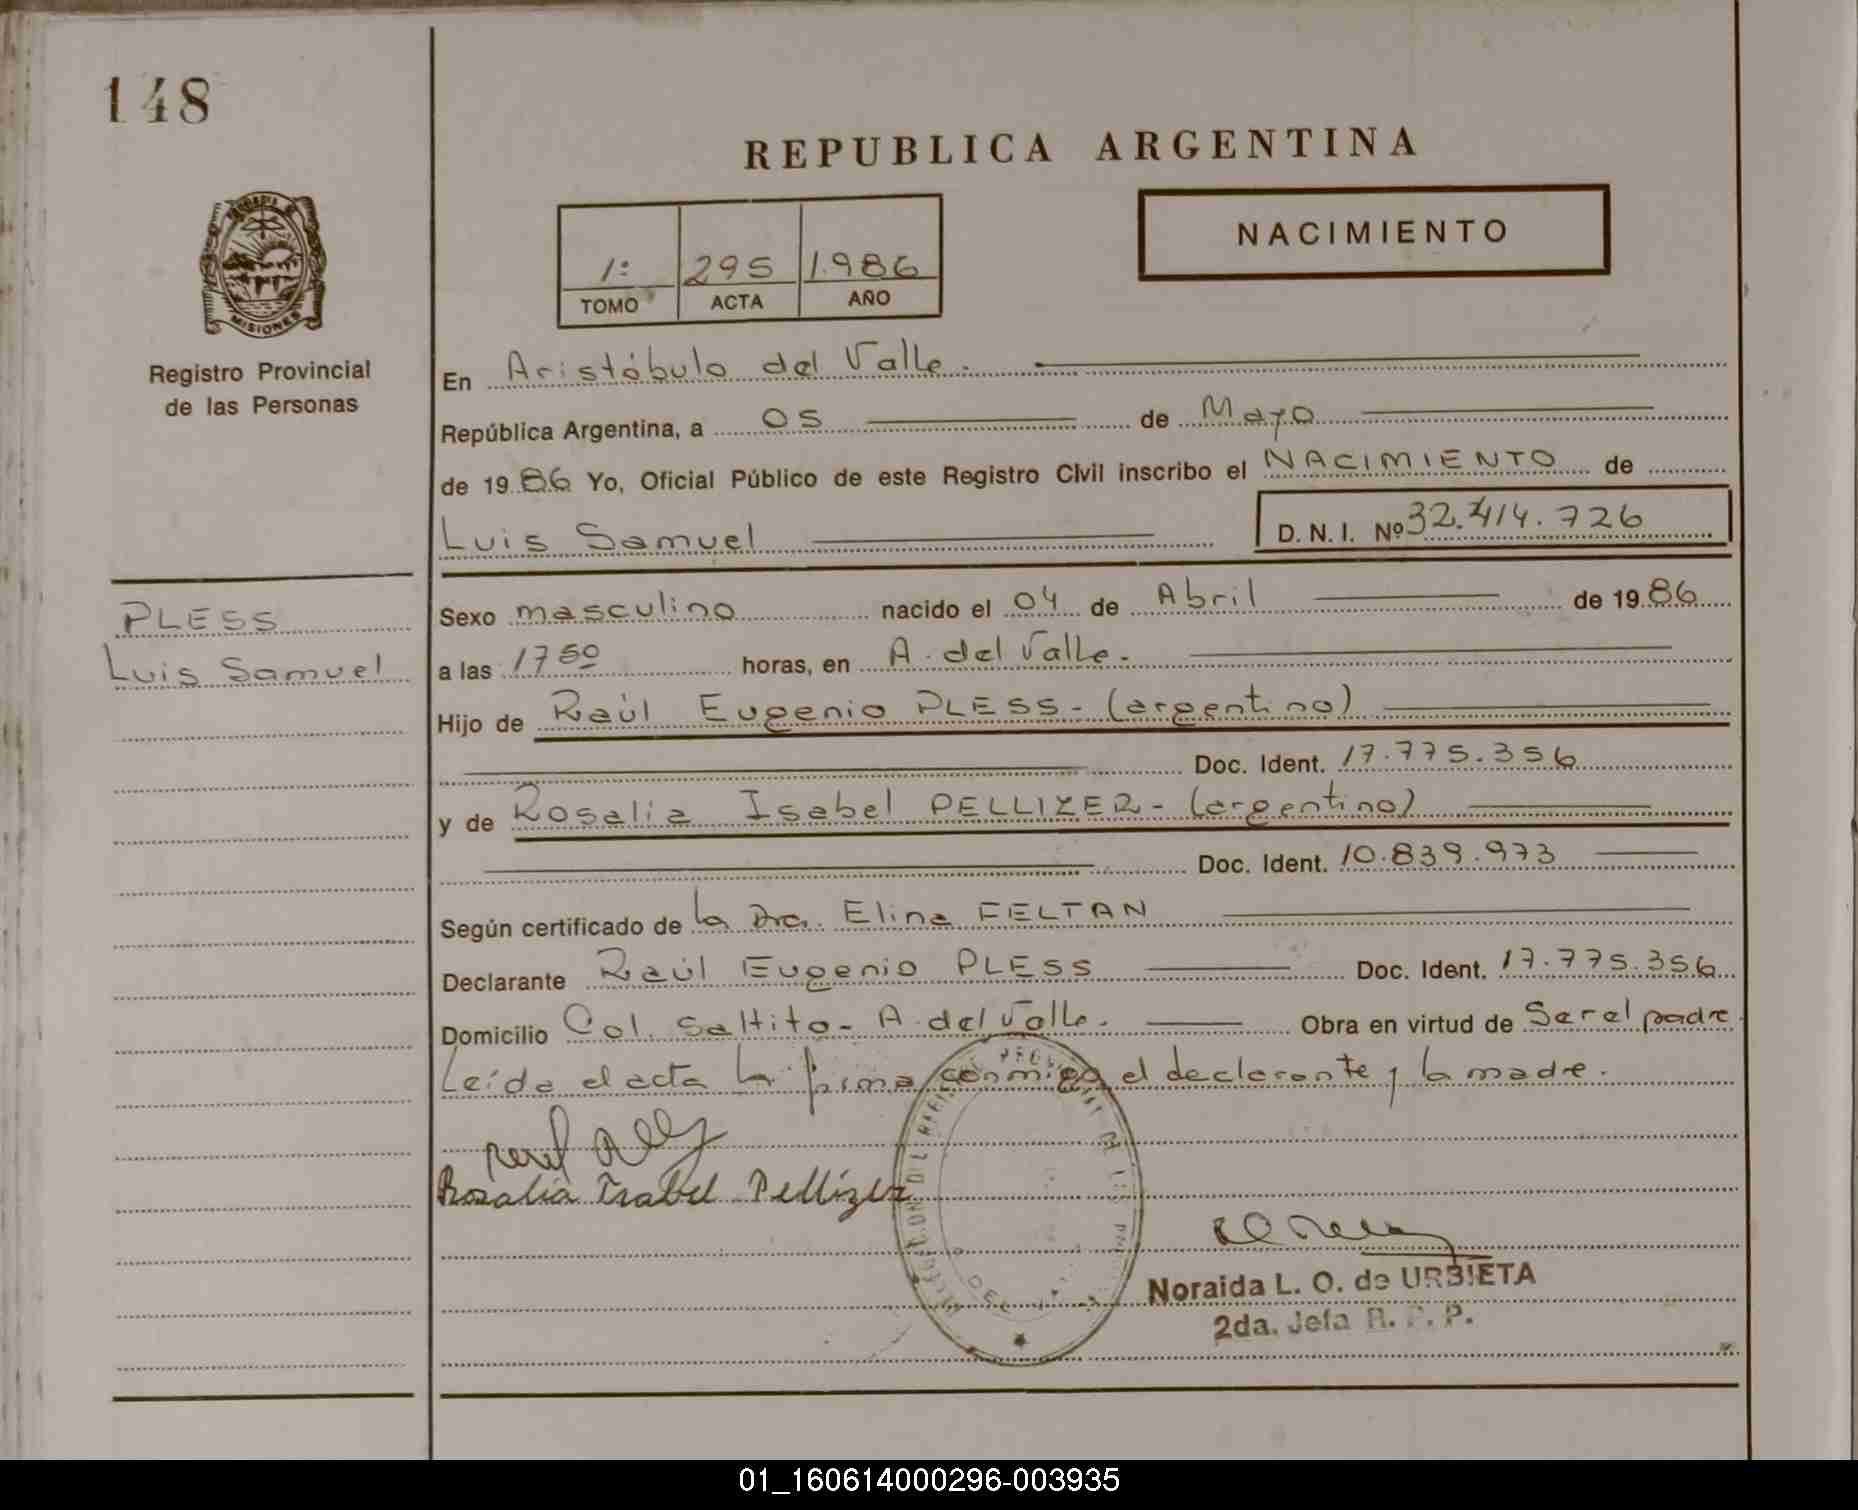 148
REPUBLICA ARGENTINA
MISIONES
Registro Provincial
de las Personas
1º 295 1.986
TOMO ACTA AÑO
NACIMIENTO
En Aristóbulo del Valle.
República Argentina, a 05 de Mayo
de 19 86 Yo, Oficial Público de este Registro Civil inscribo el NACIMIENTO de
Luis Samuel D. N. I. Nº 32.414.726
PLESS
Luis Samuel
Sexo masculino nacido el 04 de Abril de 19 86
a las 17 50 horas, en A. del Valle.
Hijo de Raúl Eugenio PLESS - (argentino)
Doc. Ident. 17.775.356
y de Rosalia Isabel PELLIZER - (argentino)
Doc. Ident. 10.839.973
Según certificado de la Dra. Elina FELTAN
Declarante Raúl Eugenio PLESS Doc. Ident. 17.775.356
Domicilio Col. Saltito - A. del Valle. Obra en virtud de Ser el padre
Leída el acta la firma conmigo el declarante y la madre.
Rosalia Isabel Pellizer
Noraida L. O. de URBIETA
2da. Jefa R. P. P.
01_160614000296-003935